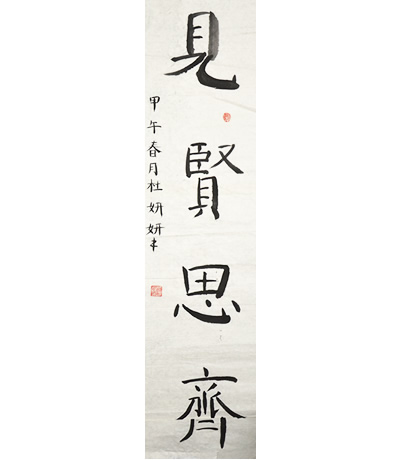 見賢思齊
甲午春月杜妍妍